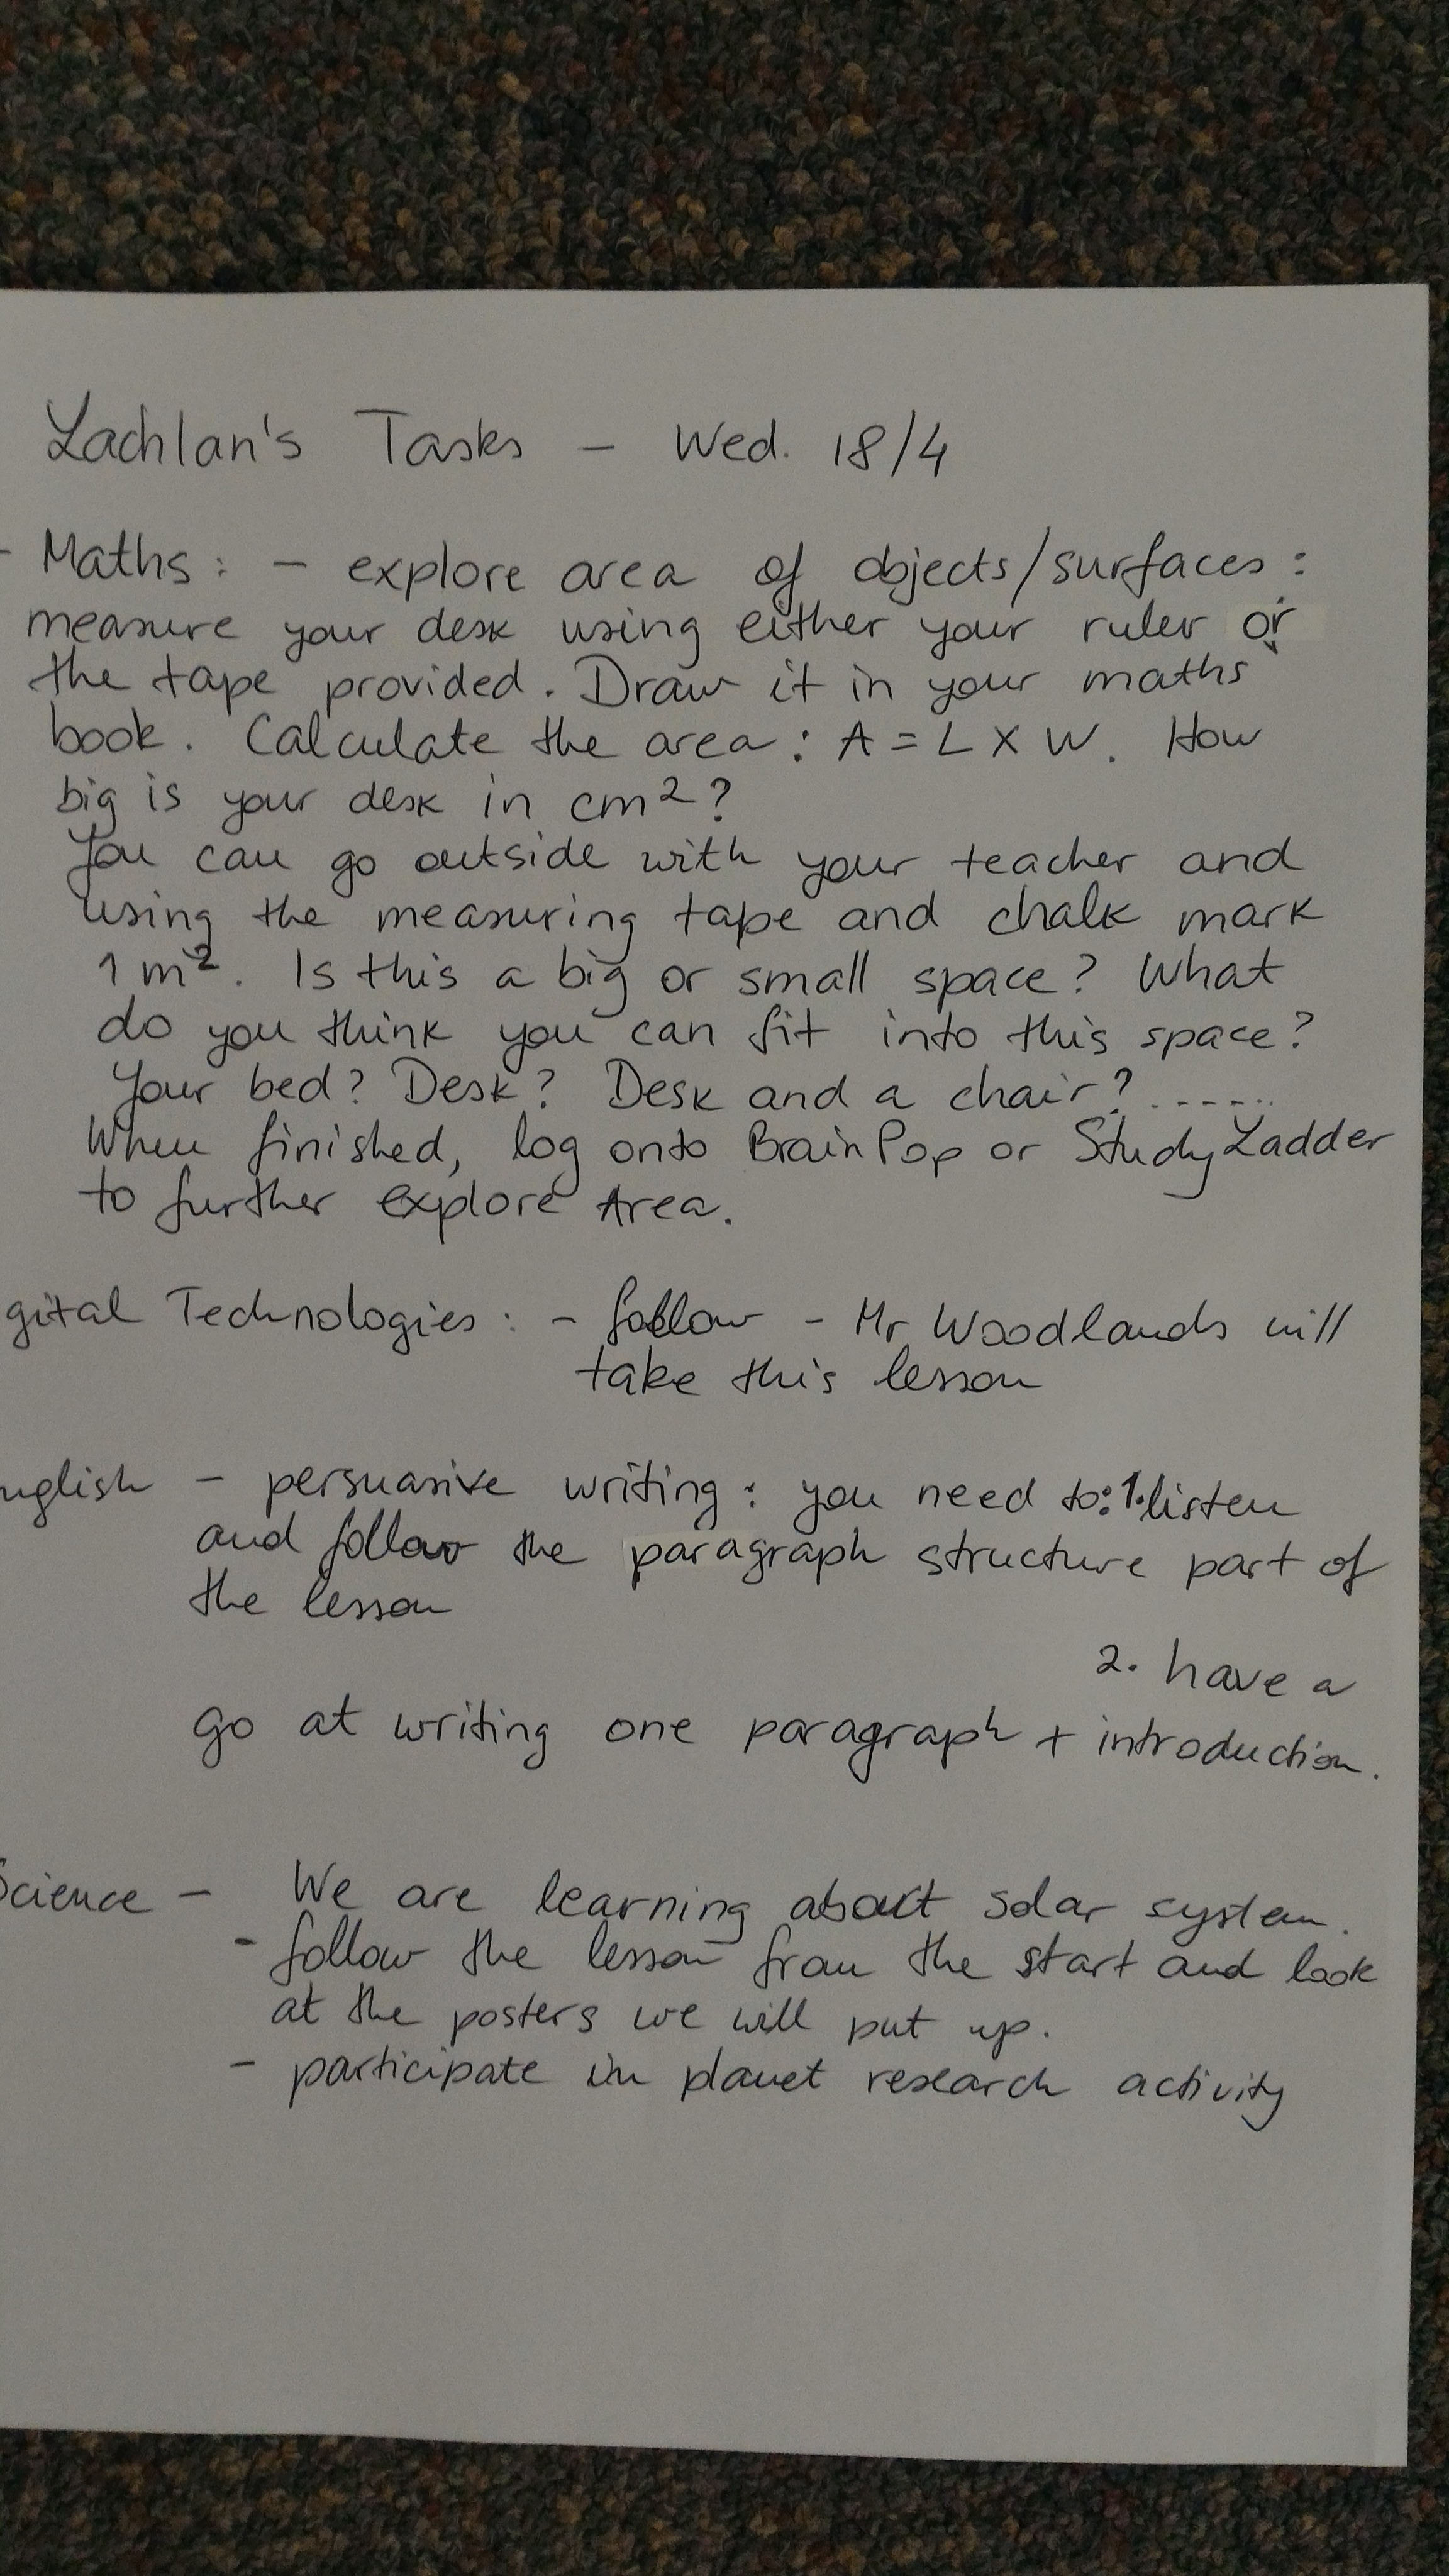 Lachlan's Tasks - Wed. 18/4
- Maths: - explore area of objects/surfaces:
measure your desk using either your ruler or
the tape provided. Draw it in your maths
book. Calculate the area: A = L X W. How
big is your desk in cm²?
You can go outside with your teacher and
using the measuring tape and chalk mark
1 m². Is this a big or small space? What
do you think you can fit into this space?
Your bed? Desk? Desk and a chair? ......
When finished, log onto BrainPop or StudyLadder
to further explore Area.
gital Technologies: - follow - Mr Woodlands will
take this lesson
nglish - persuasive writing: you need to: 1. listen
and follow the paragraph structure part of
the lesson
2. have a
go at writing one paragraph + introduction.
Science - We are learning about solar system.
- follow the lesson from the start and look
at the posters we will put up.
- participate in planet research activity